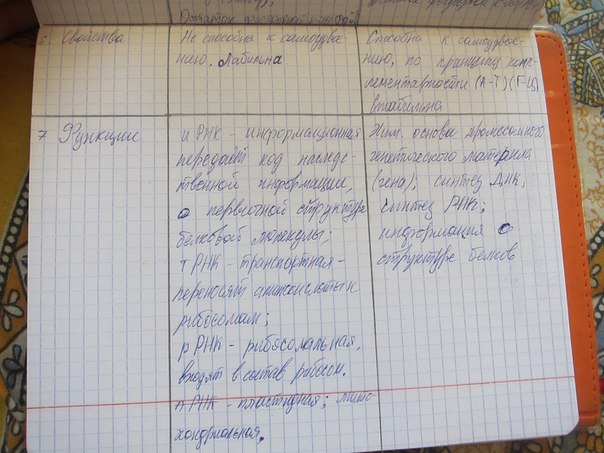 Остаток
6. Свойства
Не способна к самоудвое-
нию. Лабильна
Способна к самоудвое-
нию, по принципу ком-
плементарности (А-Т) (Г-Ц)
Стабильна
7 Функции
и РНК - информационная
передаёт код наслед-
ственной информации,
о первичной структуре
белковой молекулы;
т РНК - транспортная -
переносят аминокислоты к
рибосомам;
р РНК - рибосомальная,
входят в состав рибосом.
п РНК - пластидная; мито-
хондриальная.
Хим. основа хромосомного
генетического материла
(гена); синтез ДНК,
синтез РНК;
информация о
структуре белков